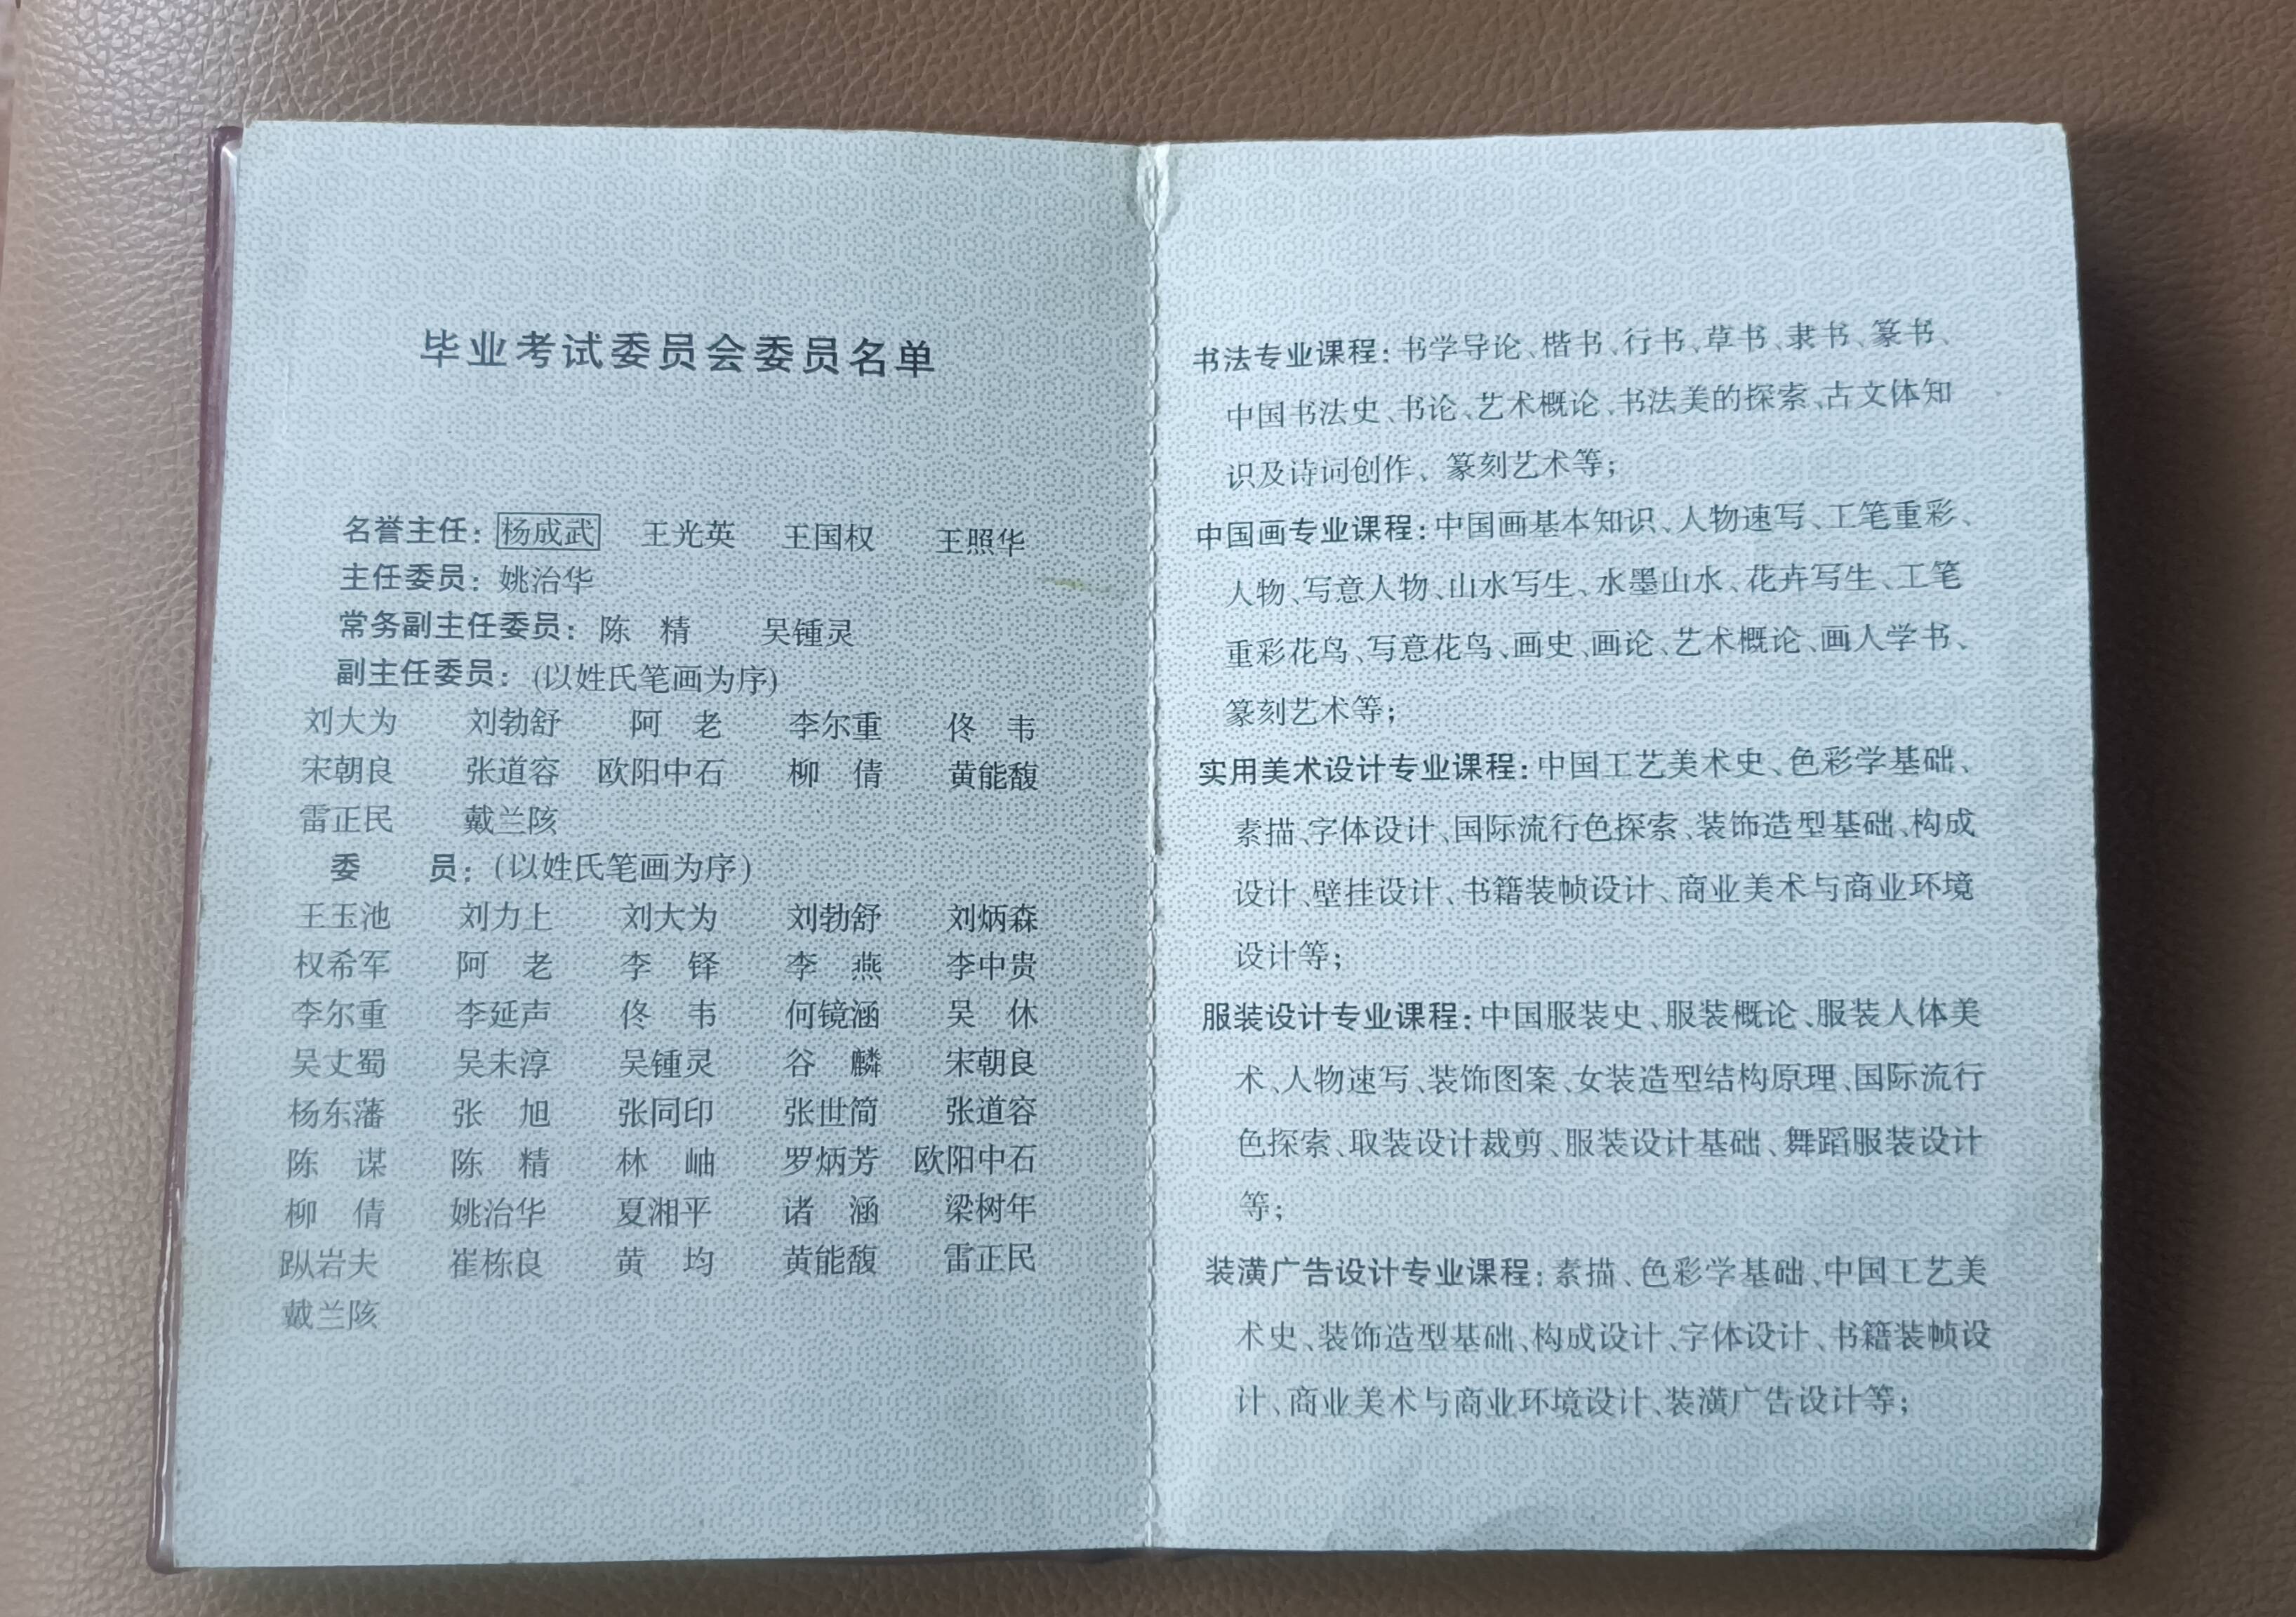 毕业考试委员会委员名单
名誉主任：杨成武 王光英 王国权 王照华
主任委员：姚治华
常务副主任委员：陈 精 吴锺灵
副主任委员：(以姓氏笔画为序)
刘大为 刘勃舒 阿 老 李尔重 佟 韦
宋朝良 张道容 欧阳中石 柳 倩 黄能馥
雷正民 戴兰陔
委 员：(以姓氏笔画为序)
王玉池 刘力上 刘大为 刘勃舒 刘炳森
权希军 阿 老 李 铎 李 燕 李中贵
李尔重 李延声 佟 韦 何镜涵 吴 休
吴丈蜀 吴未淳 吴锺灵 谷 麟 宋朝良
杨东藩 张 旭 张同印 张世简 张道容
陈 谋 陈 精 林 岫 罗炳芳 欧阳中石
柳 倩 姚治华 夏湘平 诸 涵 梁树年
岩夫 崔栋良 黄 均 黄能馥 雷正民
戴兰陔
书法专业课程：书学导论、楷书、行书、草书、隶书、篆书、
中国书法史、书论、艺术概论、书法美的探索、古文体知
识及诗词创作、篆刻艺术等；
中国画专业课程：中国画基本知识、人物速写、工笔重彩、
人物、写意人物、山水写生、水墨山水、花卉写生、工笔
重彩花鸟、写意花鸟、画史、画论、艺术概论、画人学书、
篆刻艺术等；
实用美术设计专业课程：中国工艺美术史、色彩学基础、
素描、字体设计、国际流行色探索、装饰造型基础、构成
设计、壁挂设计、书籍装帧设计、商业美术与商业环境
设计等；
服装设计专业课程：中国服装史、服装概论、服装人体美
术、人物速写、装饰图案、女装造型结构原理、国际流行
色探索、取装设计裁剪、服装设计基础、舞蹈服装设计
等；
装潢广告设计专业课程：素描、色彩学基础、中国工艺美
术史、装饰造型基础、构成设计、字体设计、书籍装帧设
计、商业美术与商业环境设计、装潢广告设计等；